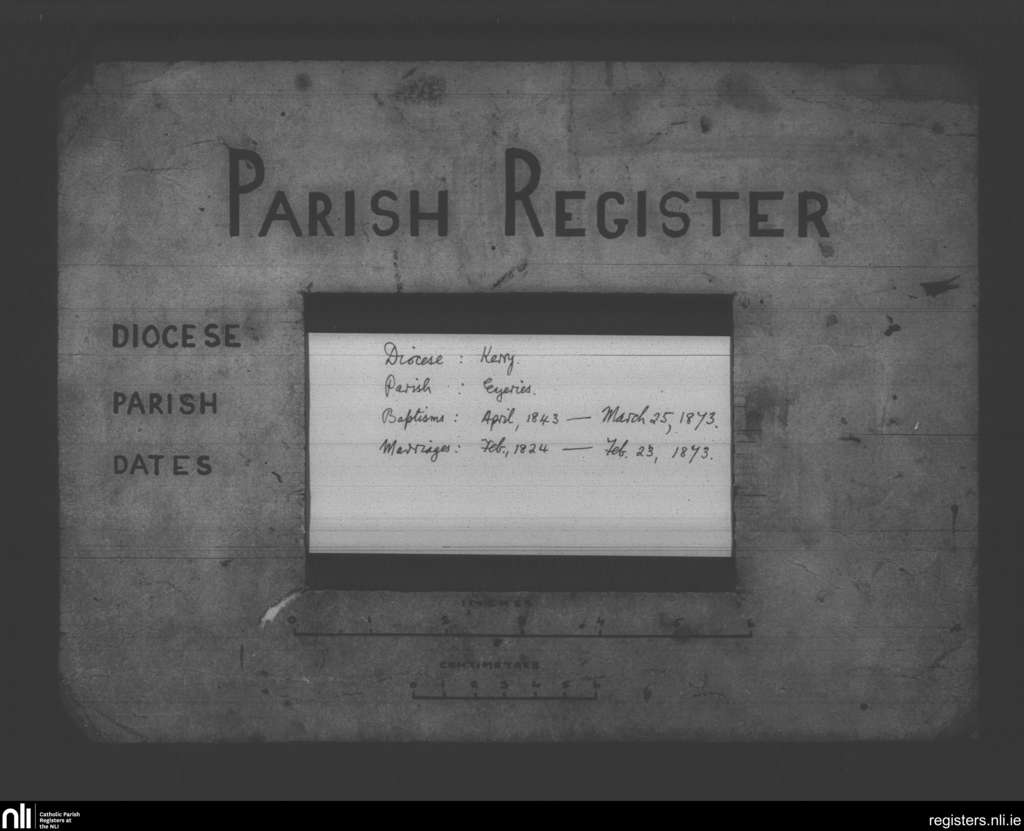 PARISH REGISTER
DIOCESE
PARISH
DATES
Diocese : Kerry.
Parish : Eyeries.
Baptisms : April, 1843 — March 25, 1873.
Marriages : Feb., 1824 — Feb. 23, 1873.
INCHES
0 1 2 3 4 5 6
CENTIMETRES
0 1 2 3 4 5 6
nli
Catholic Parish
Registers at
the NLI
registers.nli.ie